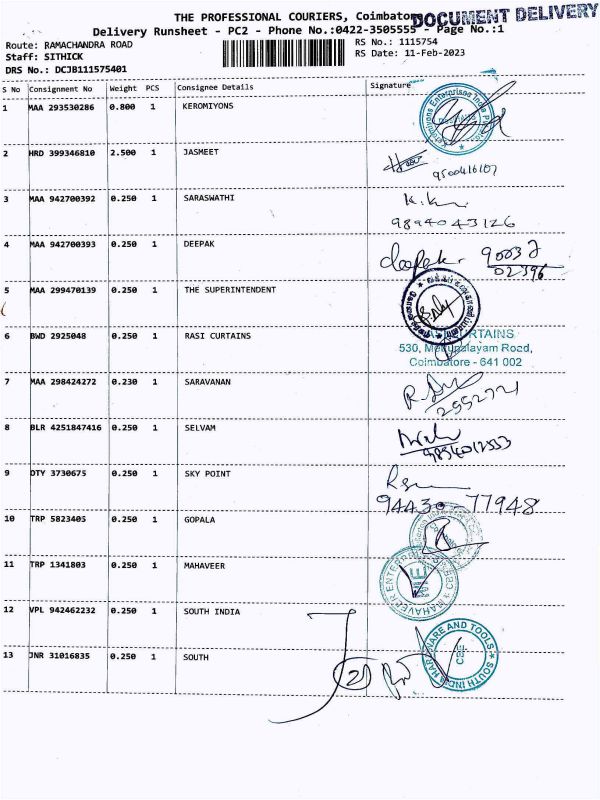 THE PROFESSIONAL COURIERS, Coimbatore
DOCUMENT DELIVERY
Delivery Runsheet - PC2 - Phone No.:0422-3505555 - Page No.:1
Route: RAMACHANDRA ROAD RS No.: 1115754
Staff: SITHICK RS Date: 11-Feb-2023
DRS No.: DCJB111575401
S No Consignment No Weight PCS Consignee Details Signature
1 MAA 293530286 0.800 1 KEROMIYONS
2 HRD 399346810 2.500 1 JASMEET
9500416107
3 MAA 942700392 0.250 1 SARASWATHI
9894043126
4 MAA 942700393 0.250 1 DEEPAK
deepak 90032
02396
5 MAA 299470139 0.250 1 THE SUPERINTENDENT
6 BWD 2925048 0.250 1 RASI CURTAINS
CURTAINS
530, Mettupalayam Road,
Coimbatore - 641 002
7 MAA 298424272 0.230 1 SARAVANAN
2552721
8 BLR 4251847416 0.250 1 SELVAM
9894012553
9 OTY 3730675 0.250 1 SKY POINT
94430-77948
10 TRP 5823405 0.250 1 GOPALA
11 TRP 1341803 0.250 1 MAHAVEER
MAHAVEER ENTERPRISES
12 VPL 942462232 0.250 1 SOUTH INDIA
13 JNR 31016835 0.250 1 SOUTH
SOUTH INDIA HARDWARE AND TOOLS
CBE